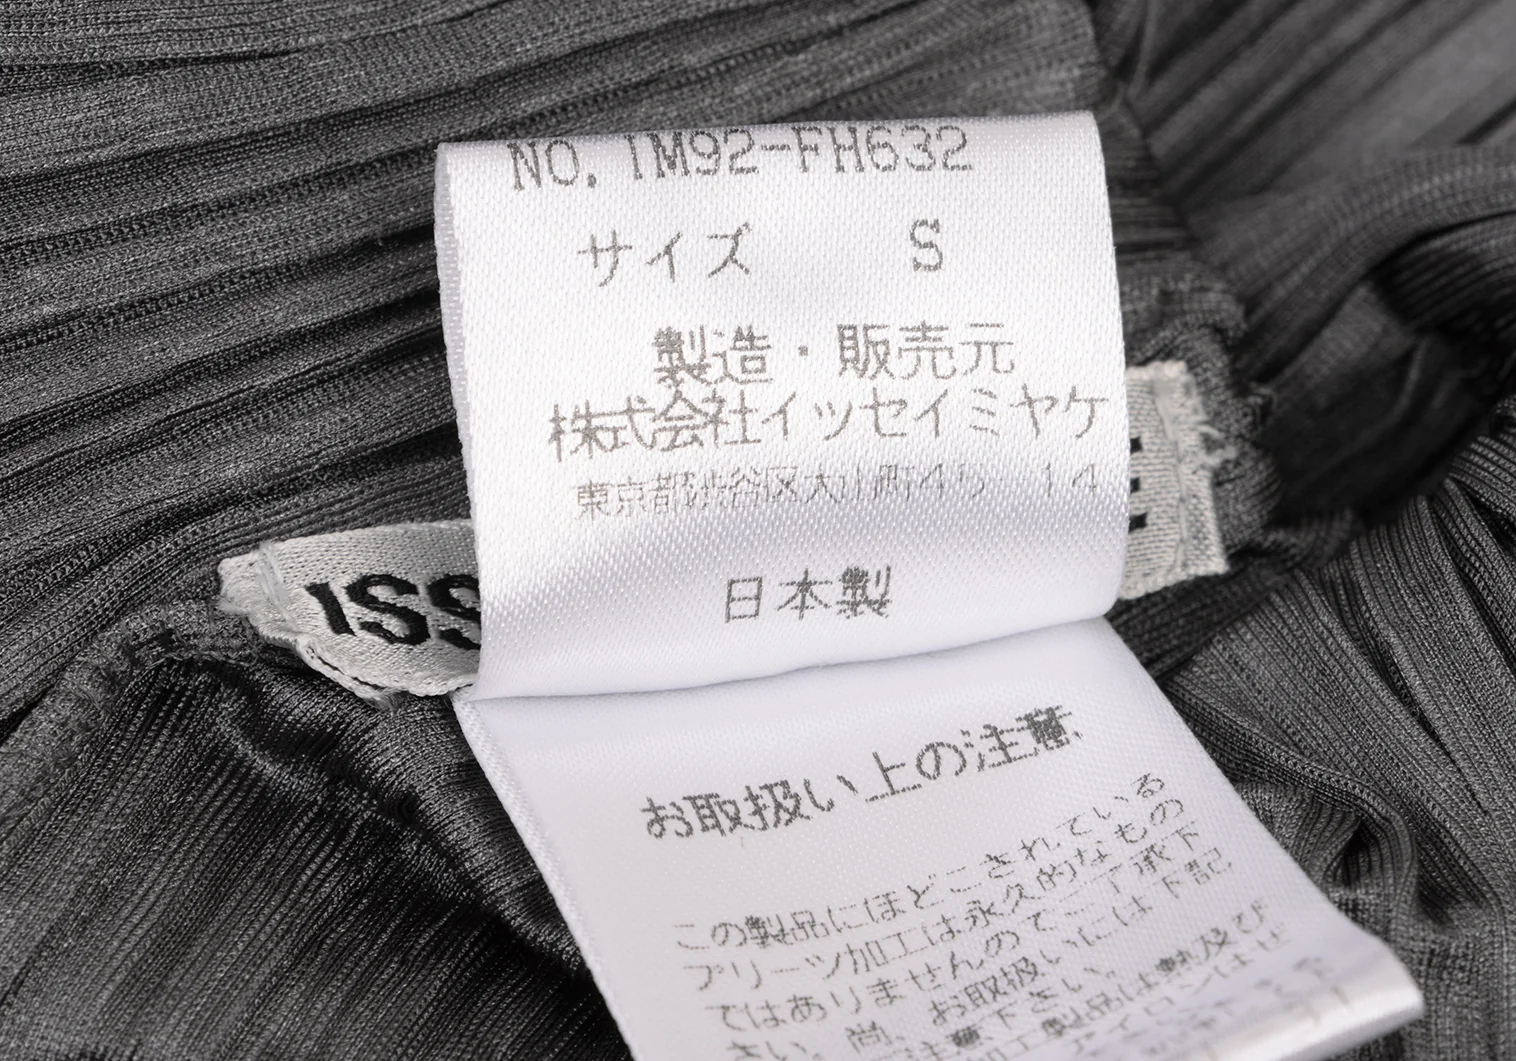 NO. IM92-FH632
サイズ S
製造・販売元
株式会社イッセイミヤケ
東京都渋谷区大山町45 14
日本製
ISS
お取扱い上の注意
この製品にほどこされている
プリーツ加工は永久的なもの
ではありませんのでご了承下
さい。尚、お取扱いには下記